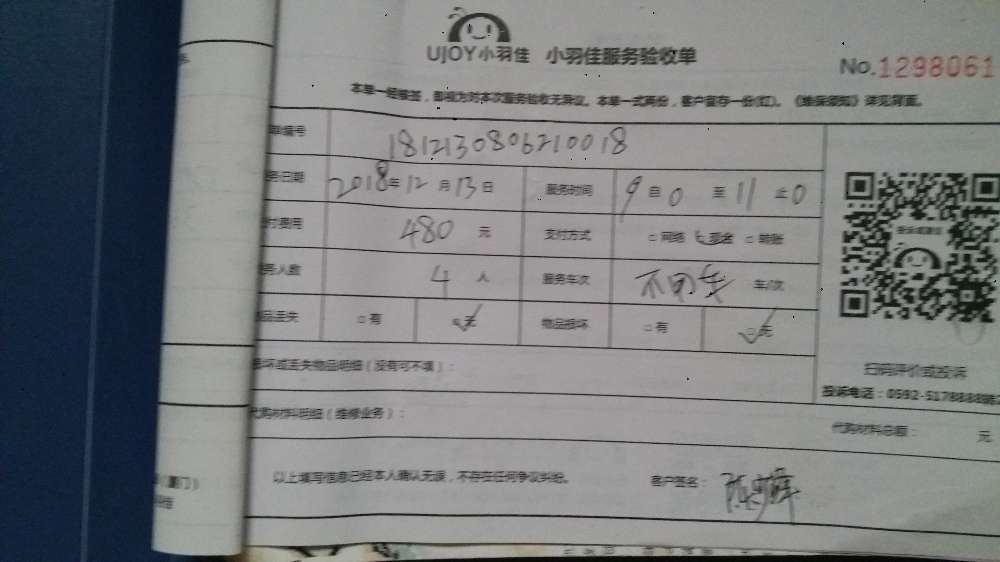 UJOY小羽佳 小羽佳服务验收单
No.1298061
本单一经接签，即视为对本次服务验收无异议。本单一式两份，客户留存一份(红)。《维保须知》详见背面。
单编号 1812130806210018
务日期 2018年12月13日 服务时间 9点0至11点0
付费用 480元 支付方式 □网络 □现金 □转账
务人数 4人 服务车次 不用车 车/次
品丢失 □有 □无 物品损坏 □有 □无
坏或丢失物品明细（没有可不填）：
扫码评价或投诉
投诉电话：0592-5178888
代购材料明细（维修业务）：
代购材料总额： 元
以上填写信息已经本人确认无误，不存在任何争议纠纷。 客户签名：
（厦门）